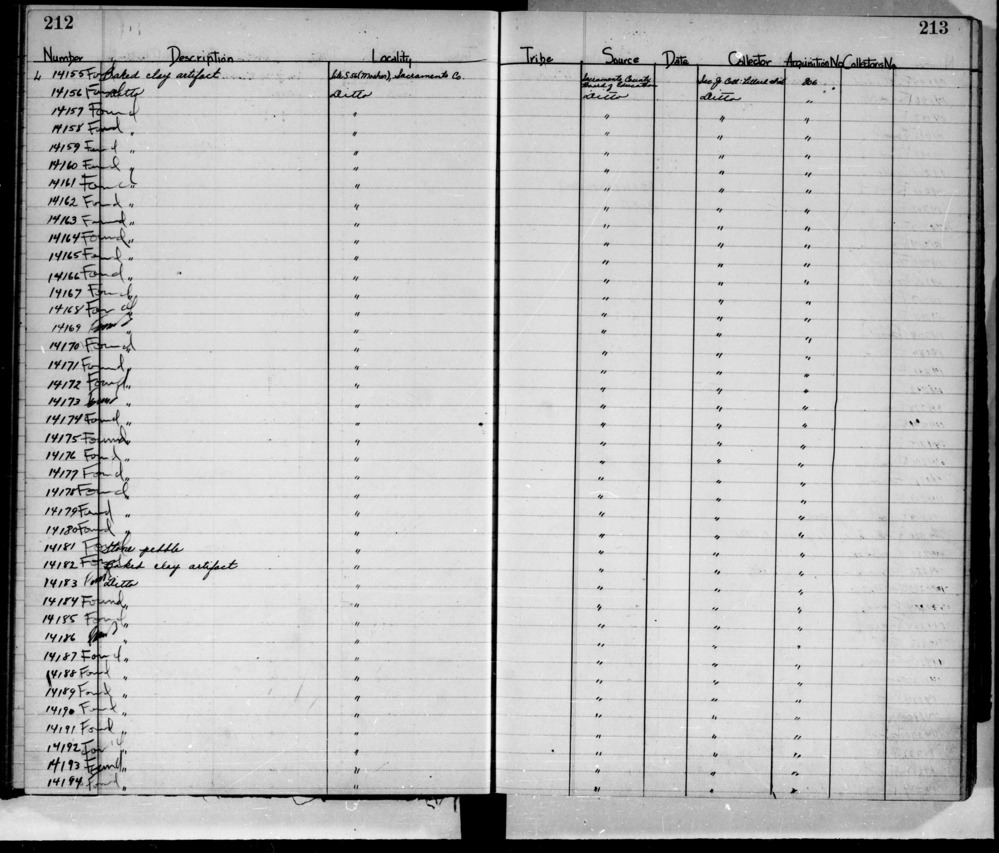 212
213
Number Description Locality Tribe Source Date Collector Acquisition No Collectors No
L 14155 Found Baked clay artifact Sacramento Co. Sacramento County Board of Education
14156 Found Ditto Ditto Ditto Ditto "
14157 Found " " " " "
14158 Found " " " " "
14159 Found " " " " "
14160 Found " " " " "
14161 Found " " " " "
14162 Found " " " " "
14163 Found " " " " "
14164 Found " " " " "
14165 Found " " " " "
14166 Found " " " " "
14167 Found " " " " "
14168 Found " " " " "
14169 " " " " "
14170 Found " " " " "
14171 Found " " " " "
14172 Found " " " " "
14173 " " " " "
14174 Found " " " " "
14175 Found " " " " "
14176 Found " " " " "
14177 Found " " " " "
14178 Found " " " " "
14179 Found " " " " "
14180 Found " " " " "
14181 Found Stone pebble " " " "
14182 Found Baked clay artifact " " " "
14183 Found Ditto " " " "
14184 Found " " " " "
14185 Found " " " " "
14186 " " " " "
14187 Found " " " " "
14188 Found " " " " "
14189 Found " " " " "
14190 Found " " " " "
14191 Found " " " " "
14192 Found " " " " "
14193 Found " " " " "
14194 Found " " " " "